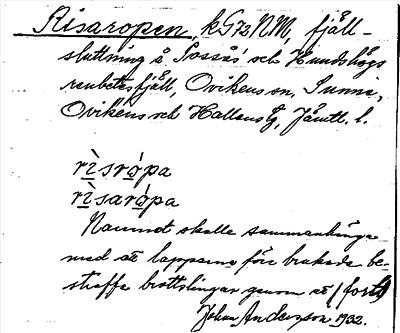 Risaropen, kG72NM, fjäll-
sluttning å Sossås och Hundshögs
renbetesfjäll, Ovikens sn, Sunne,
Ovikens och Hallens tg, Jämtl. l.
rìsrópa
rìsarópa
Namnet skulle sammanhänga
med att lapparna förr brukade be-
straffa brottslingar genom att (forts)
Johan Andersson 1932.